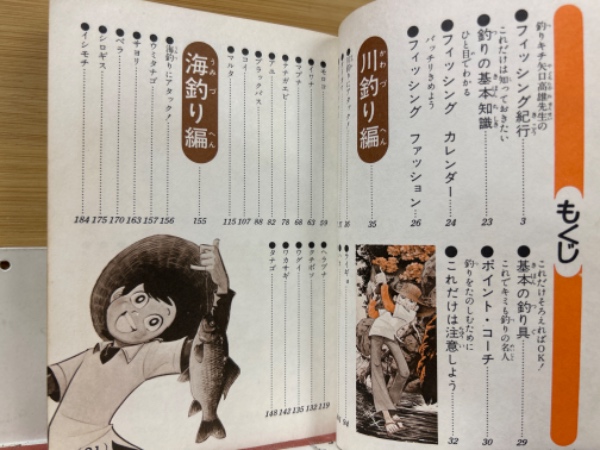 もくじ
釣りキチ矢口高雄先生の
●フィッシング紀行 3
これだけは知っておきたい
●釣りの基本知識 23
ひと目でわかる
●フィッシング カレンダー 24
バッチリきめよう
●フィッシング ファッション 26
これだけそろえればOK!
●基本の釣り具 29
これでキミも釣りの名人
●ポイント・コーチ 30
釣りをたのしむために
●これだけは注意しよう 32
川釣り編 35
●ライギョ 94
●モロコ 59
●イワナ 63
●マブナ 68
●テナガエビ 78
●アユ 82
●ブラックバス 86
●コイ 107
●マルタ 115
●ヘラブナ 119
●クチボソ 132
●ウグイ 135
●ワカサギ 142
●タナゴ 148
海釣り編 155
●海釣りにアタック! 156
●ウミタナゴ 157
●サヨリ 163
●ベラ 170
●シロギス 175
●イシモチ 184